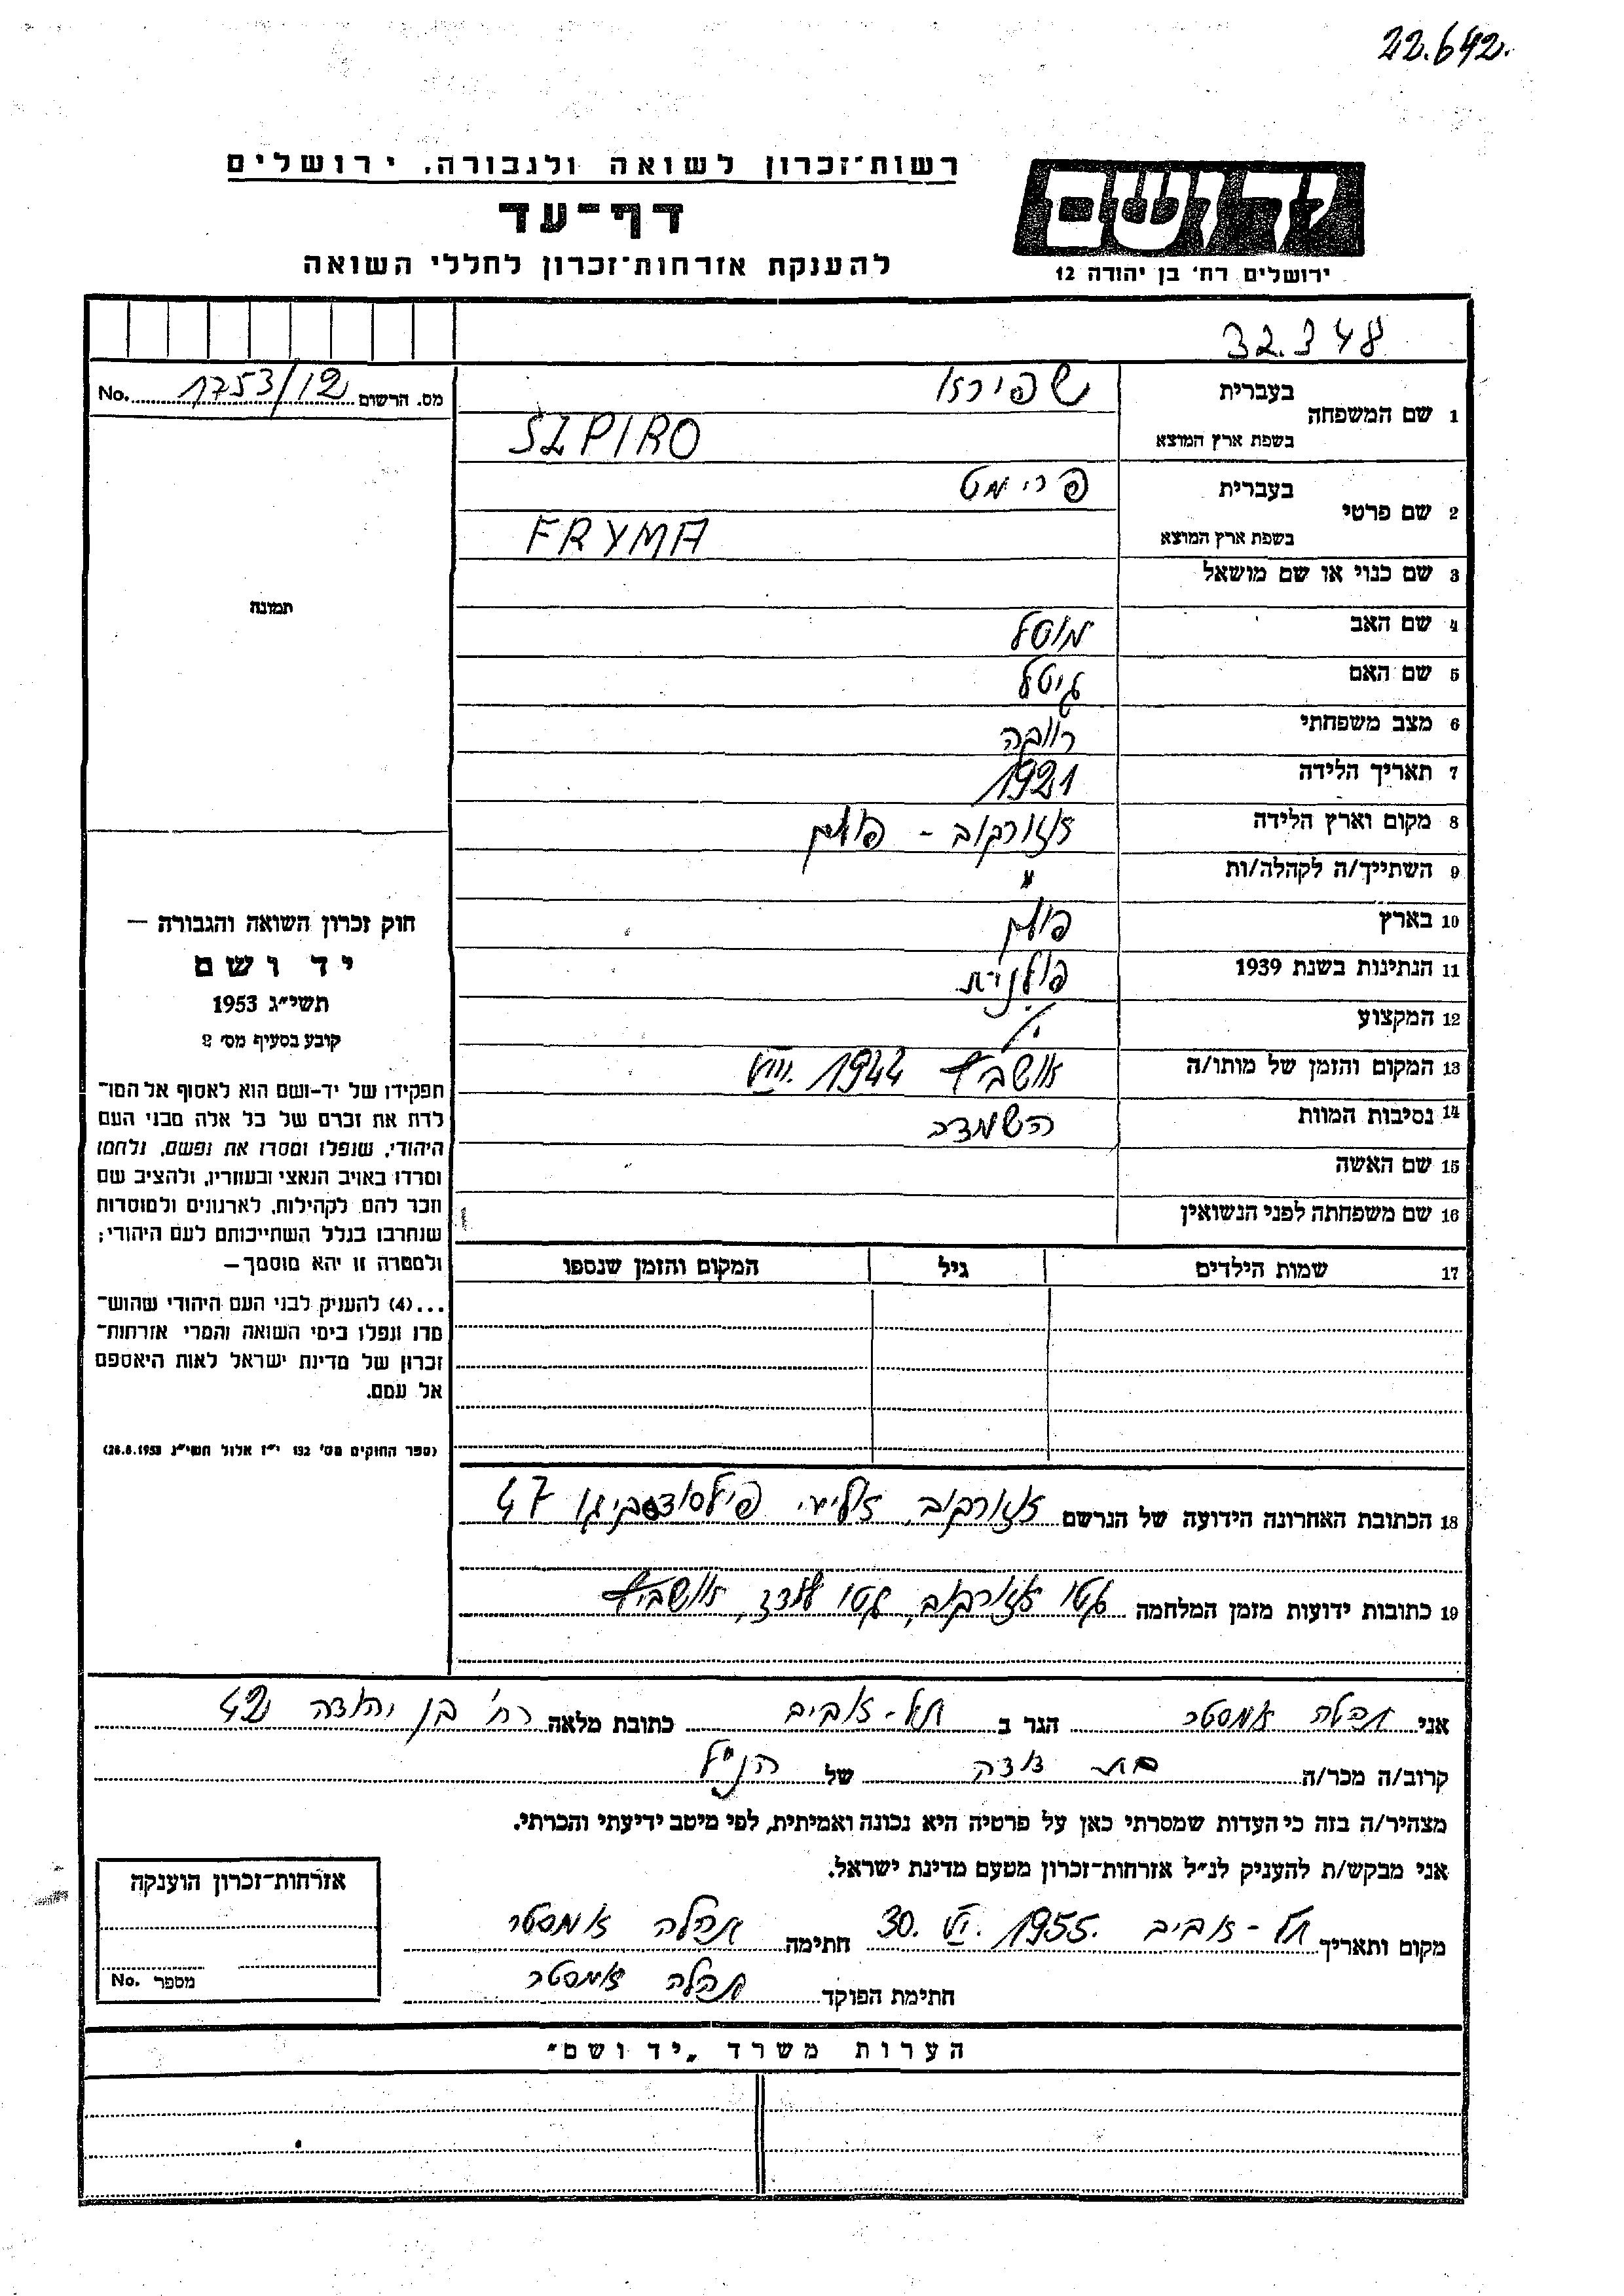 22.642.
רשות־זכרון לשואה ולגבורה, ירושלים
דף־עד
להענקת אזרחות־זכרון לחללי השואה
ידושם
ירושלים רח' בן יהודה 12
32.348
מס. הרשום 1753/12 No.
1 שם המשפחה
בעברית שפירא
בשפת ארץ המוצא SZPIRO
2 שם פרטי
בעברית פרימט
בשפת ארץ המוצא FRYMA
3 שם כנוי או שם מושאל
תמונה
4 שם האב
5 שם האם גיטל
6 מצב משפחתי רווקה
7 תאריך הלידה 1921
8 מקום וארץ הלידה אוזורקוב - פולין
9 השתייך/ה לקהלה/ות "
10 בארץ פולין
11 הנתינות בשנת 1939 פולנית
12 המקצוע
13 המקום והזמן של מותו/ה אושביץ VIII. 1944
14 נסיבות המוות השמדה
15 שם האשה
16 שם משפחתה לפני הנשואין
17 שמות הילדים גיל המקום והזמן שנספו
חוק זכרון השואה והגבורה —
יד ושם
תשי״ג 1953
קובע בסעיף מס' 2
תפקידו של יד-ושם הוא לאסוף אל המו־
לדת את זכרם של כל אלה מבני העם
היהודי, שנפלו ומסרו את נפשם, נלחמו
ומרדו באויב הנאצי ובעוזריו, ולהציב שם
וזכר להם לקהילות, לארגונים ולמוסדות
שנחרבו בגלל השתייכותם לעם היהודי;
ולמטרה זו יהא מוסמך —
...(4) להעניק לבני העם היהודי שהוש־
מדו ונפלו בימי השואה והמרי אזרחות־
זכרון של מדינת ישראל לאות היאספם
אל עמם.
(ספר החוקים מס' 132 י״ז אלול תשי״ג 28.8.1953)
18 הכתובת האחרונה הידועה של הנרשם אוזורקוב, פילסודסקיגו 47
19 כתובות ידועות מזמן המלחמה גטו אוזורקוב, גטו לודז, אושביץ
אני תהלה אמסטר הגר ב תל-אביב כתובת מלאה רח' בן יהודה 42
קרוב/ה מכר/ה בת דודה של הנ"ל
מצהיר/ה בזה כי העדות שמסרתי כאן על פרטיה היא נכונה ואמיתית, לפי מיטב ידיעתי והכרתי.
אני מבקש/ת להעניק לנ״ל אזרחות־זכרון מטעם מדינת ישראל.
מקום ותאריך תל-אביב 30. VI. 1955. חתימה תהלה אמסטר
חתימת הפוקד תהלה אמסטר
אזרחות־זכרון הוענקה
מספר No.
הערות משרד „יד ושם"